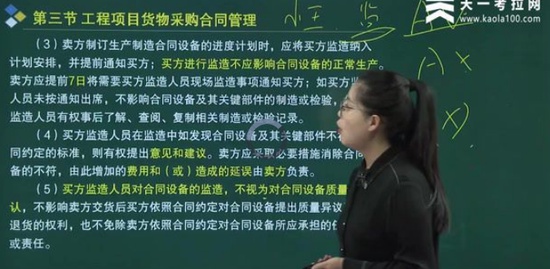 第三节 工程项目货物采购合同管理
天一考拉网
www.kaola100.com
(3)卖方制订生产制造合同设备的进度计划时,应将买方监造纳入
计划安排,并提前通知买方;买方进行监造不应影响合同设备的正常生产。
卖方应提前7日将需要买方监造人员现场监造事项通知买方;如买方监
人员未按通知出席,不影响合同设备及其关键部件的制造或检验,
监造人员有权事后了解、查阅、复制相关制造或检验记录。
(4)买方监造人员在监造中如发现合同设备及其关键部件不
同约定的标准,则有权提出意见和建议。卖方应采取必要措施消除合同
备的不符,由此增加的费用和(或)造成的延误由卖方负责。
(5)买方监造人员对合同设备的监造,不视为对合同设备质量
认,不影响卖方交货后买方依照合同约定对合同设备提出质量异议
退货的权利,也不免除卖方依照合同约定对合同设备所应承担的
或责任。